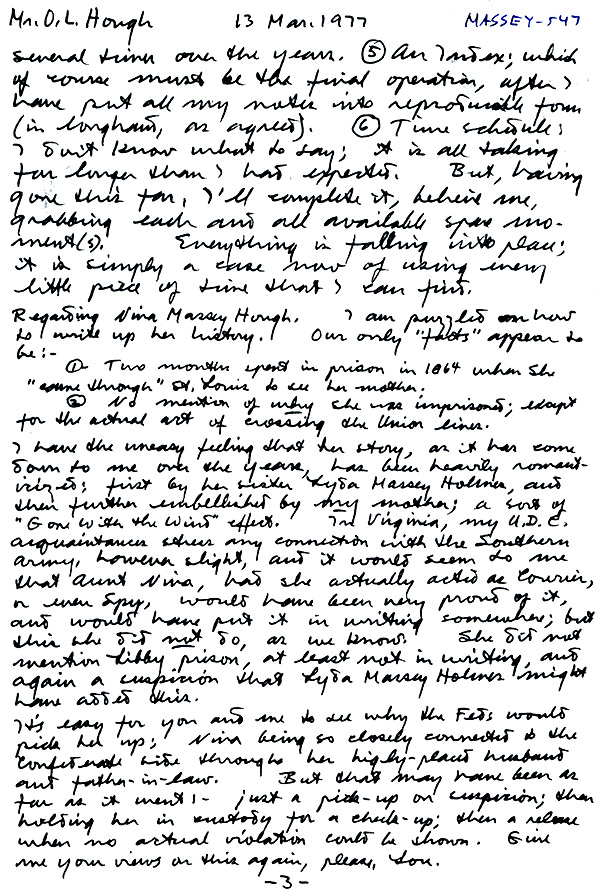 Mr. O.L. Hough 13 Mar. 1977 MASSEY-547
several times over the years. ⑤ An Index; which
of course must be the final operation, after I
have put all my notes into reproducible form
(in longhand, as agreed). ⑥ Time schedule:
I don't know what to say; it is all taking
far longer than I had expected. But, having
gone this far, I'll complete it, believe me,
grabbing each and all available spare mo-
ment(s). Everything is falling into place;
it is simply a case now of using every
little piece of time that I can find.
Regarding Nina Massey Hough. I am puzzled on how
to write up her history. Our only "facts" appear to
be:-
① Two months spent in prison in 1864 when she
"came through" St. Louis to see her mother.
② No mention of why she was imprisoned; except
for the actual act of crossing the Union lines.
I have the uneasy feeling that her story, as it has come
down to me over the years, has been heavily romant-
icized; first by her sister Lyda Massey Holmes, and
then further embellished by my mother; a sort of
"Gone With the Wind" effect. In Virginia, my U.D.C.
acquaintances stress any connection with the Southern
army, however slight, and it would seem to me
that Aunt Nina, had she actually acted as Courier,
or even Spy, would have been very proud of it,
and would have put it in writing somewhere; but
this she did not do, as we know. She did not
mention Libby prison, at least not in writing, and
again a suspicion that Lyda Massey Holmes might
have added this.
It's easy for you and me to see why the Feds would
pick her up; Nina being so closely connected to the
Confederate side through her highly-placed husband
and father-in-law. But that may have been as
far as it went:- just a pick-up on suspicion; then
holding her in custody for a check-up; then a release
when no actual violation could be shown. Give
me your views on this again, please, Lou.
-3-